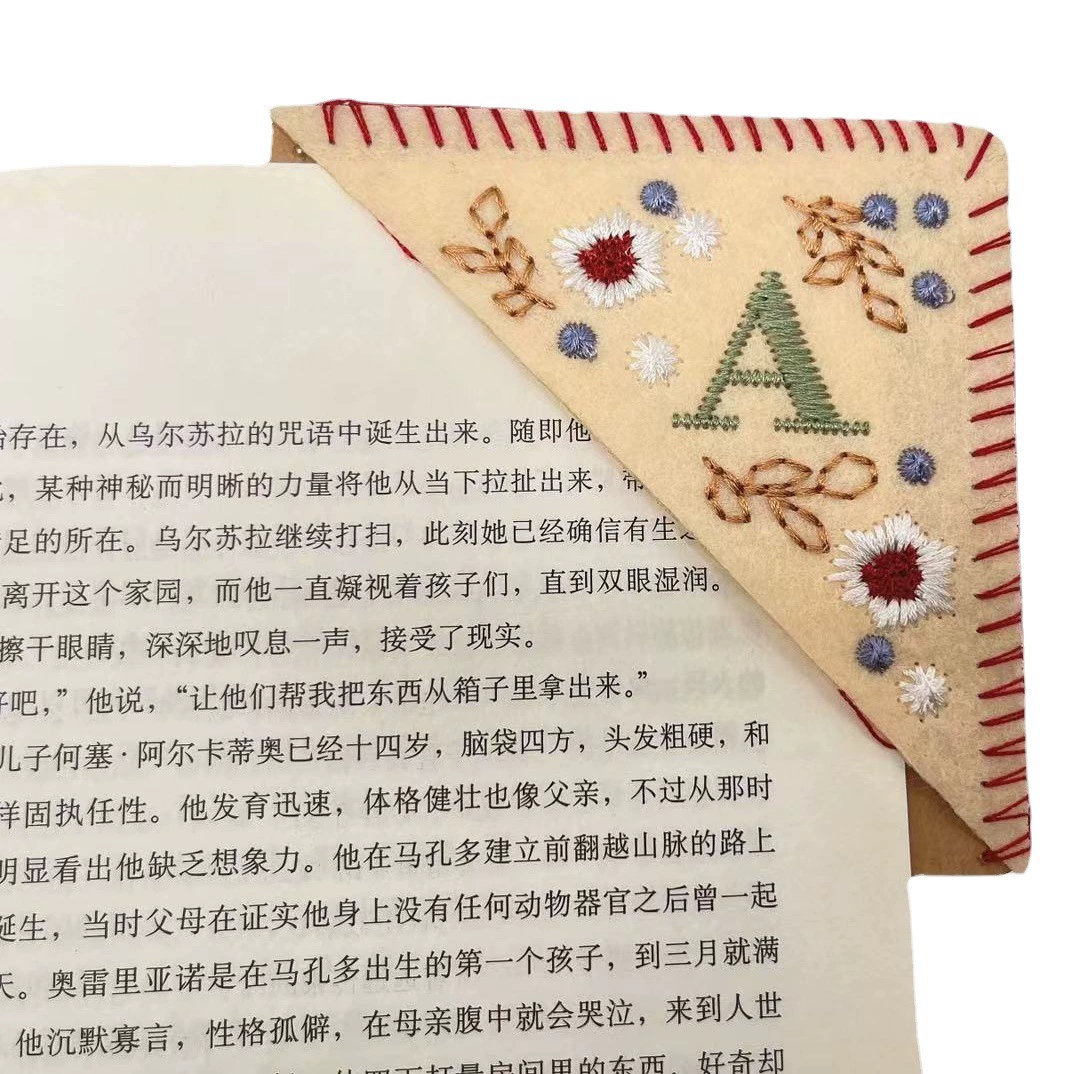 A
存在，从乌尔苏拉的咒语中诞生出来。随即他
，某种神秘而明晰的力量将他从当下拉扯出来，带
足的所在。乌尔苏拉继续打扫，此刻她已经确信有生之
离开这个家园，而他一直凝视着孩子们，直到双眼湿润。
擦干眼睛，深深地叹息一声，接受了现实。
好吧，”他说，“让他们帮我把东西从箱子里拿出来。”
儿子何塞·阿尔卡蒂奥已经十四岁，脑袋四方，头发粗硬，和
样固执任性。他发育迅速，体格健壮也像父亲，不过从那时
明显看出他缺乏想象力。他在马孔多建立前翻越山脉的路上
诞生，当时父母在证实他身上没有任何动物器官之后曾一起
天。奥雷里亚诺是在马孔多出生的第一个孩子，到三月就满
他沉默寡言，性格孤僻，在母亲腹中就会哭泣，来到人世
他四下打量房间里的东西，好奇却